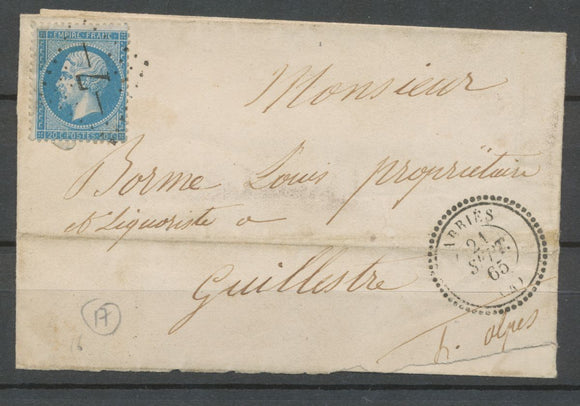 EMPIRE FRANC
20 C POSTES 20 C
7
Monsieur
Borme Louis propriétaire
et Liquoriste a
Guillestre
h. alpes
ABRIÈS
21
SEPT.
65
(4)
17
16